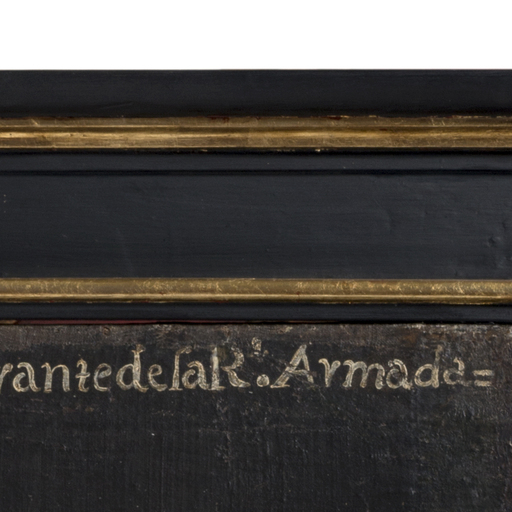 yante de la Rˡ. Armada=